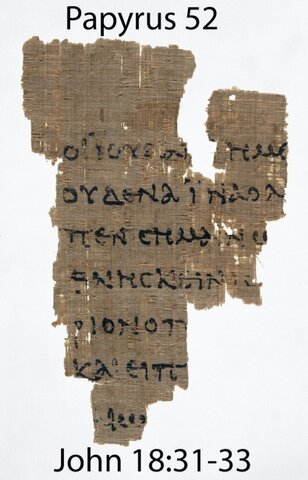 Papyrus 52
ΟΙ ΙΟΥΔΑΙ ΗΜΕ
ΟΥΔΕΝΑ ΪΝΑ Ο Λ
ΠΕΝ ϹΗΜΑΙΝΩ
ΘΝΗϹΚΕΙΝ ΙϹ
ΡΙΟΝ Ο Π
ΚΑΙ ΕΙΠ
John 18:31-33